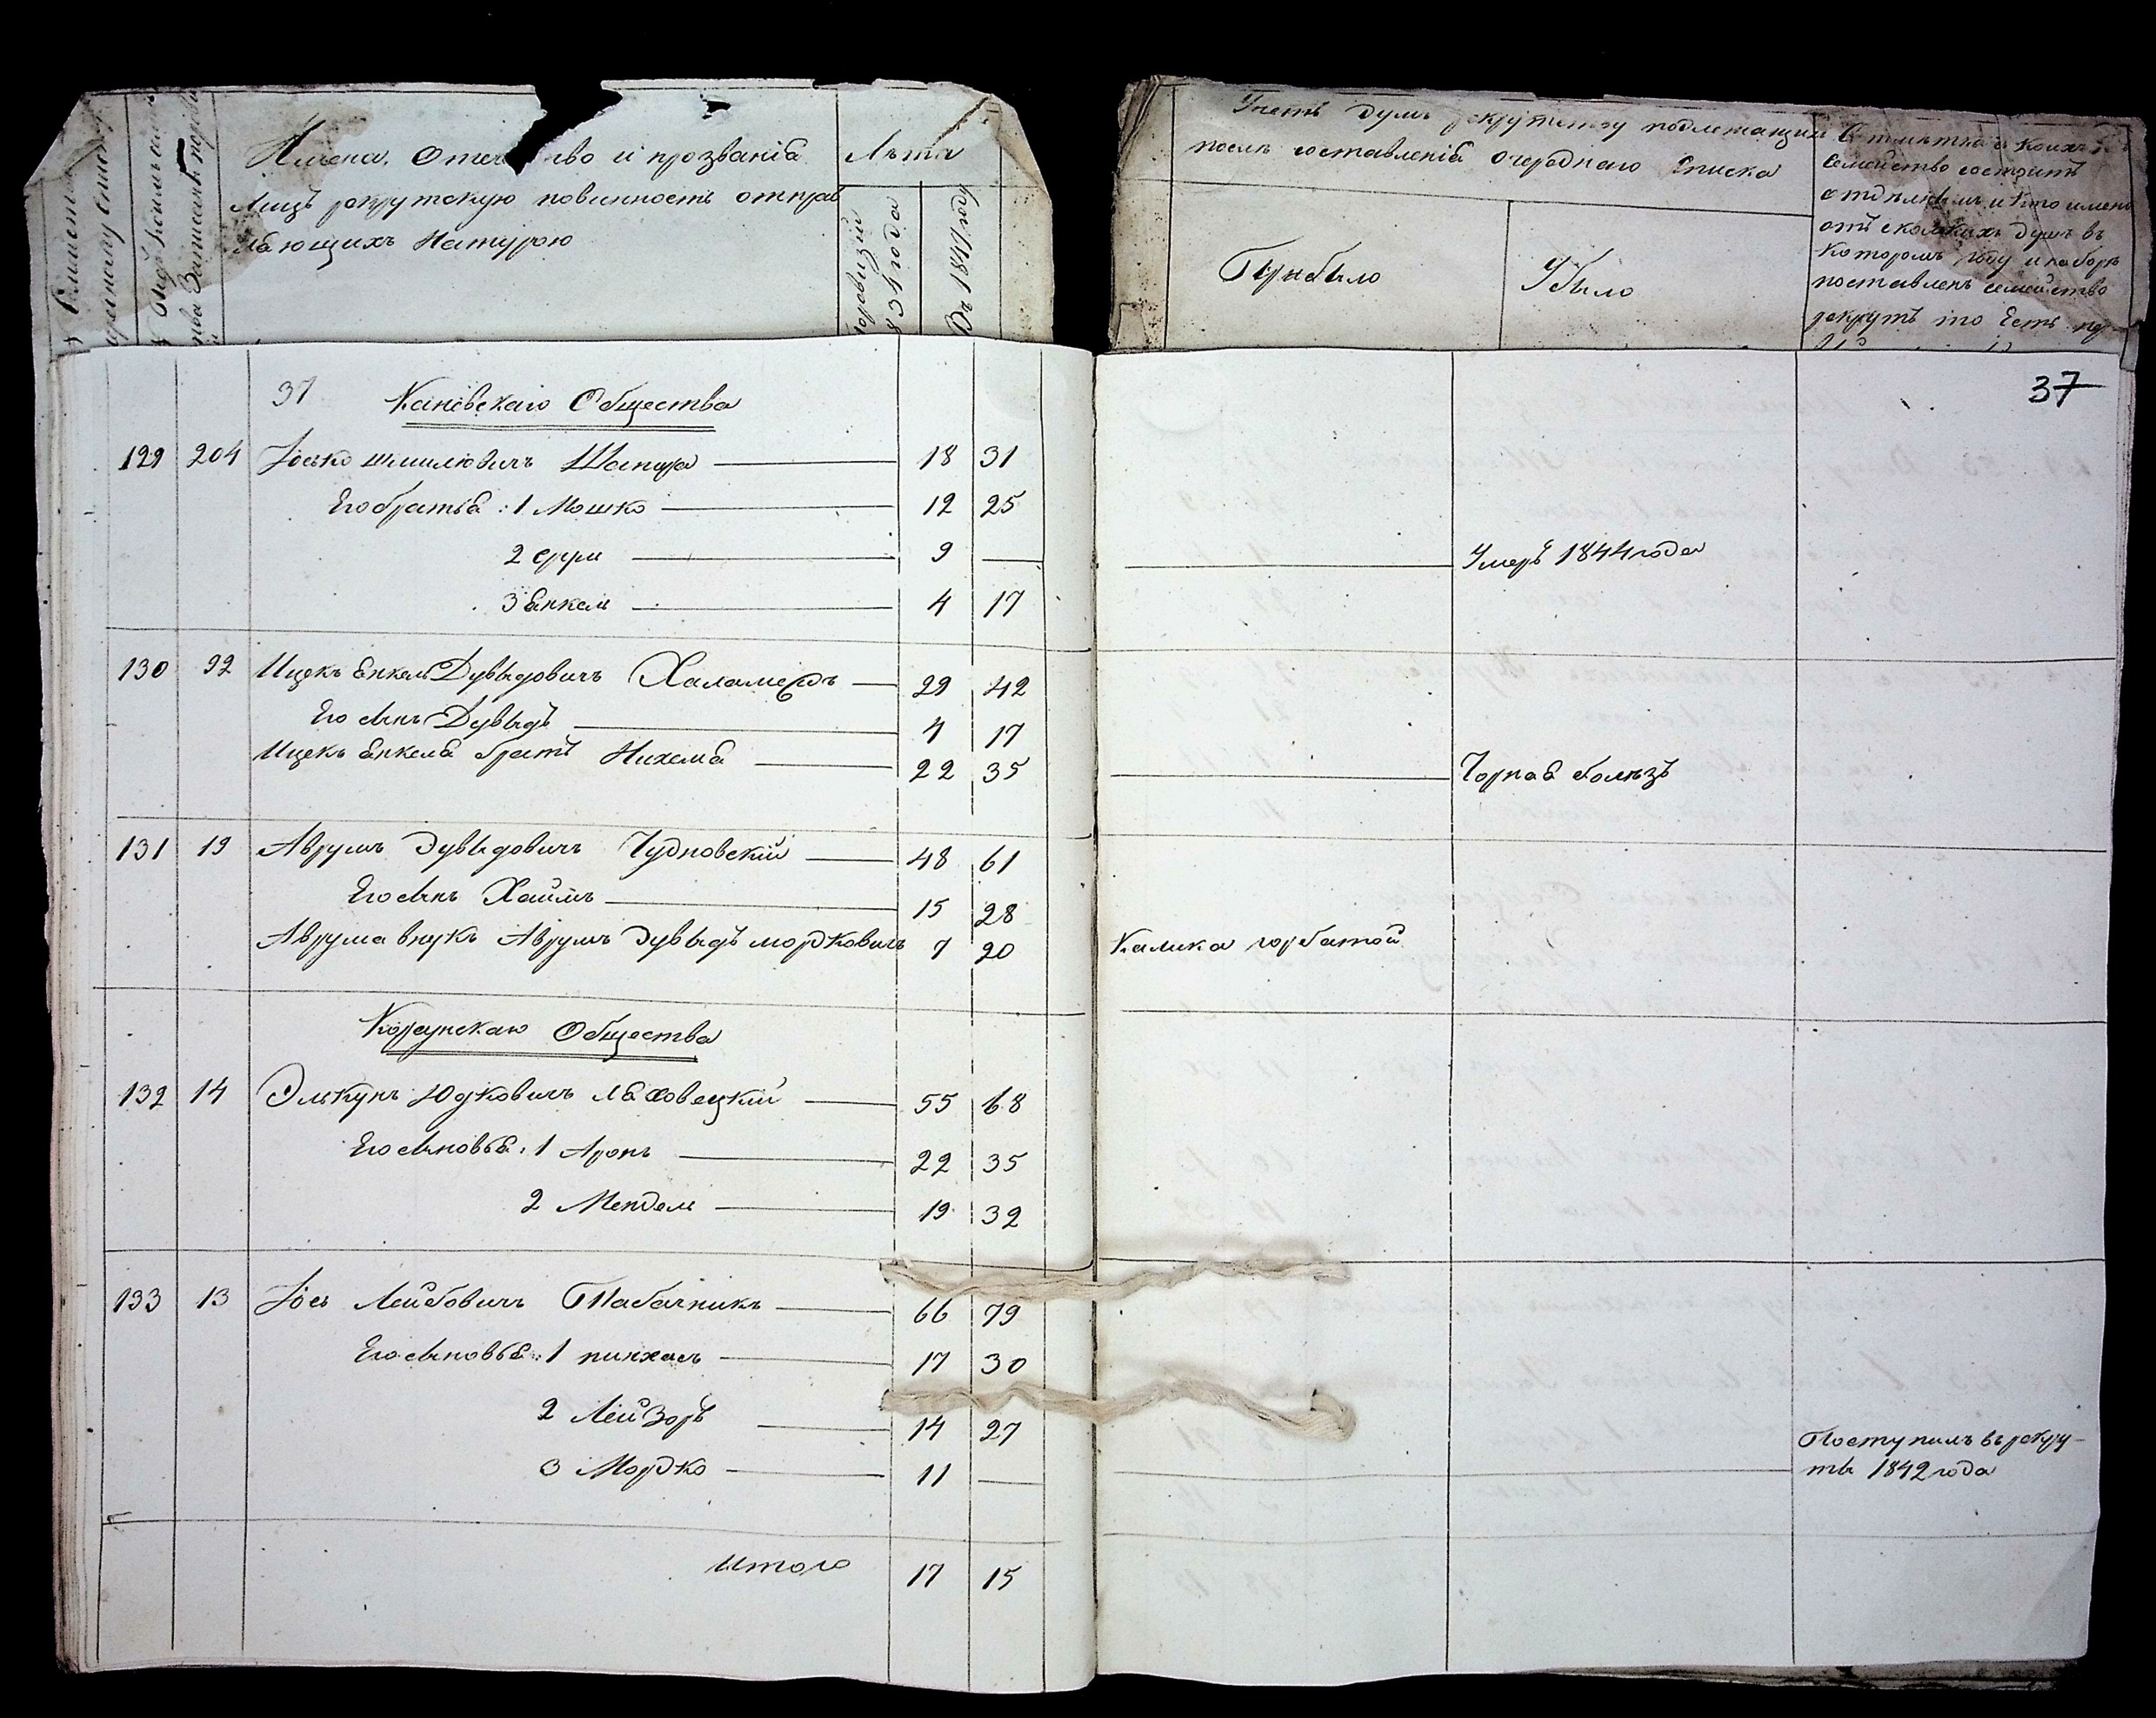 Имена, Отечество и прозванія
Лицъ рекрутскую повинность отправ
ляющихъ Натурою
Лѣта
По ревизіи
1834 года
Въ 1847 году
Учетъ душъ рекрутству подлежащихъ
послѣ составленія очереднаго Списка
Прибыло
Убыло
Отмѣтка о коихъ
Семейство состоитъ
отдѣльнымъ и кто имено
отъ сколькихъ душъ въ
которомъ году и наборѣ
поставленъ семейство
рекрутъ то Есть
37
Каневскаго Общества
37
129 204 Іосько Шмилювичъ Шапира 18 31
Его братья: 1 Мошко 12 25
2 Сруль 9 — Умеръ 1844 года
3 Янкель 4 17
130 92 Ицекъ Янкель Дувыдовичъ Халамедъ 29 42
Его сынъ Дувыдъ 4 17
Ицекъ Янкеля братъ Нихемя 22 35 Чорная болезъ
131 19 Аврумъ Дувыдовичъ Чудновскій 48 61
Его сынъ Хаимъ 15 28
Аврума внукъ Аврумъ Дувыдъ Мордковичъ 7 20 Калика горбатой
Корсунскаго Общества
132 14 Элькунъ Юдковичъ Ляховецкій 55 68
Его сыновья: 1 Аронъ 22 35
2 Мендель 19 32
133 13 Іось Лейбовичъ Табачникъ 66 79
Его сыновья: 1 пинхасъ 17 30
2 Лейзоръ 14 27
3 Мордко 11 — Поступилъ въ рекру-
ты 1842 года
Итого 17 15